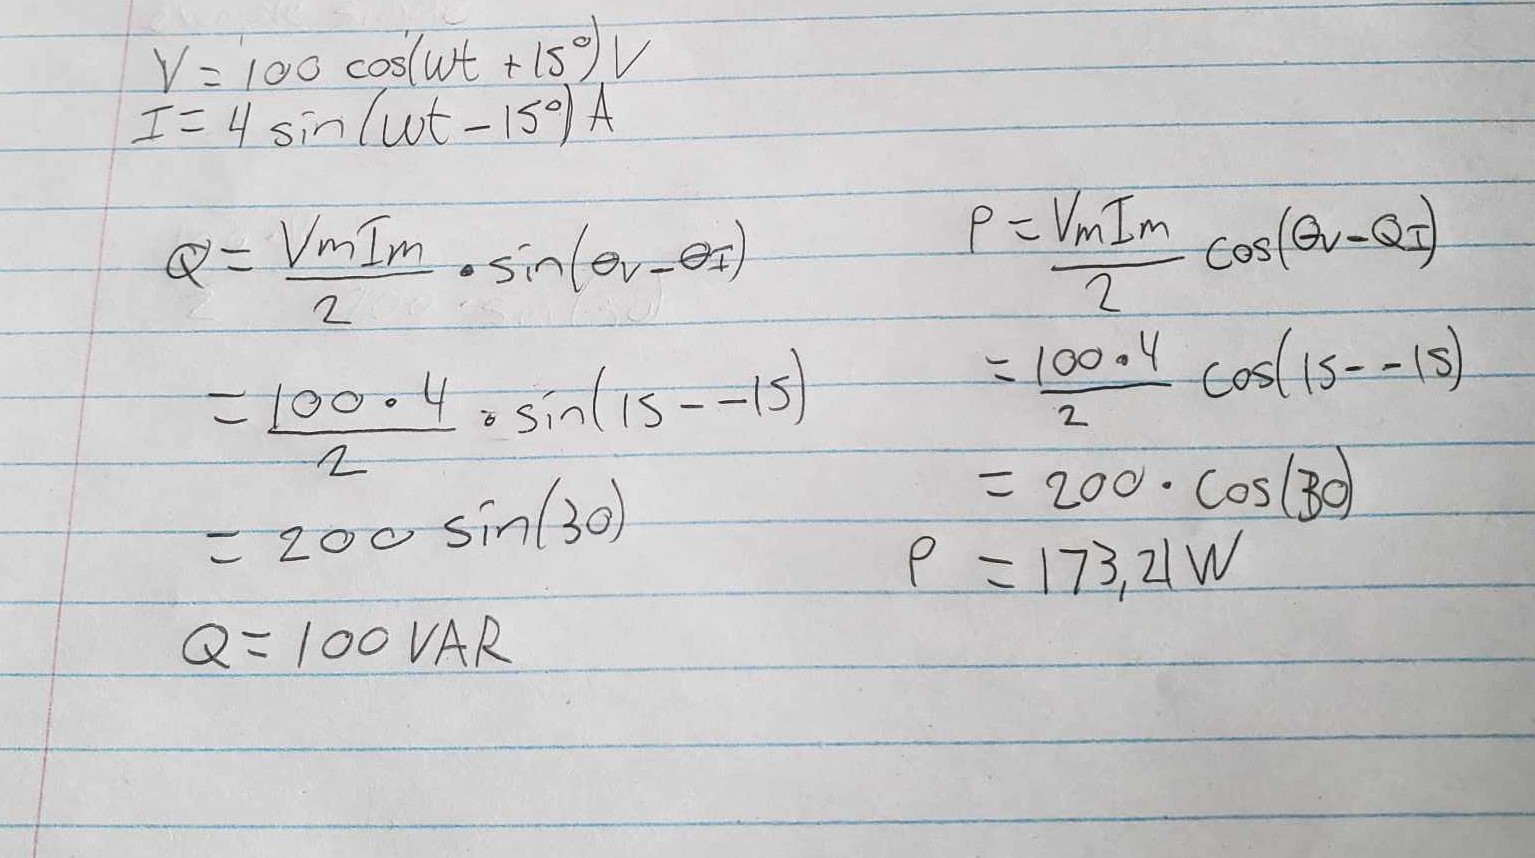 V = 100 cos(wt + 15°) V
I = 4 sin(wt - 15°) A
Q = VmIm/2 • sin(θv - θI)
= 100 • 4/2 • sin(15 - -15)
= 200 sin(30)
Q = 100 VAR
P = VmIm/2 cos(θv - QI)
= 100 • 4/2 cos(15 - -15)
= 200 • cos(30)
P = 173,21 W